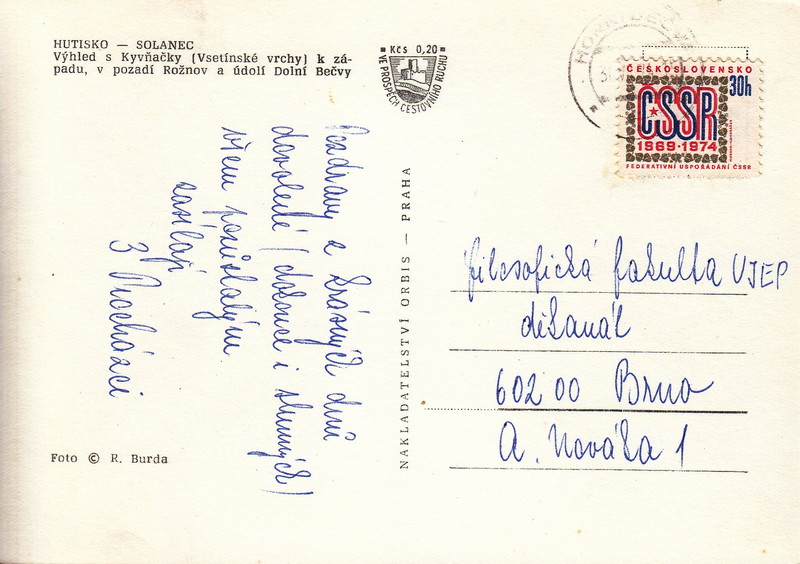 HUTISKO — SOLANEC
Výhled s Kyvňačky (Vsetínské vrchy) k zá-
padu, v pozadí Rožnov a údolí Dolní Bečvy
Kčs 0,20
VE PROSPĚCH CESTOVNÍHO RUCHU
ČESKOSLOVENSKO
30h
ČSSR
1969·1974
FEDERATIVNÍ USPOŘÁDÁNÍ ČSSR
Pozdravy z krásných dnů
dovolené (dokonce i slunných)
všem pozůstalým
zasílají
3 Procházci
NAKLADATELSTVÍ ORBIS — PRAHA
filosofická fakulta UJEP
děkanát
602 00 Brno
A. Nováka 1
Foto © R. Burda